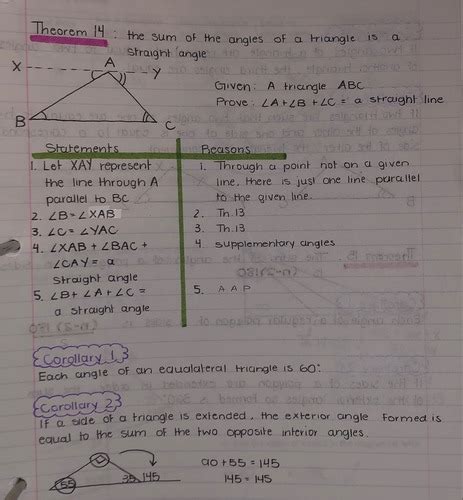 Theorem 14 : the sum of the angles of a triangle is a
straight angle
X A Y
Given: A triangle ABC
Prove: ∠A+∠B+∠C = a straight line
B C
Statements Reasons
1. Let XAY represent
the line through A
parallel to BC
2. ∠B=∠XAB
3. ∠C= ∠YAC
4. ∠XAB + ∠BAC +
∠CAY = a
straight angle
5. ∠B+ ∠A + ∠C =
a straight angle
1. Through a point not on a given
line, there is just one line parallel
to the given line.
2. Th.13
3. Th.13
4. supplementary angles
5. A.A.P
Corollary 1
Each angle of an equalateral triangle is 60°.
Corollary 2
If a side of a triangle is extended, the exterior angle formed is
equal to the sum of the two opposite interior angles.
55 35 145
90+55 = 145
145 = 145